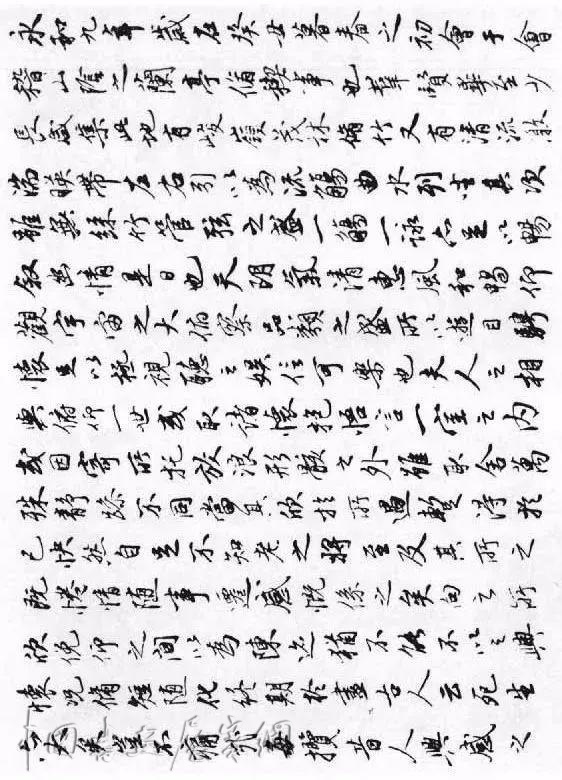 永和九年歲在癸丑暮春之初會于會
稽山陰之蘭亭脩禊事也羣賢畢至少
長咸集此地有峻嶺茂林脩竹又有清流激
湍暎帶左右引以為流觴曲水列坐其次
雖無絲竹管弦之盛一觴一詠亦足以暢
敘幽情是日也天朗氣清惠風和暢仰
觀宇宙之大俯察品類之盛所以遊目騁
懷足以極視聽之娛信可樂也夫人之相
與俯仰一世或取諸懷抱悟言一室之內
或因寄所託放浪形骸之外雖取舍萬
殊靜躁不同當其欣於所遇暫得於
己怏然自足不知老之將至及其所之
既惓情隨事遷感慨係之矣向之所
欣俛仰之間以為陳迹猶不能不以之興
懷況脩短隨化終期於盡古人云死生
亦大矣豈不痛哉每攬昔人興感之